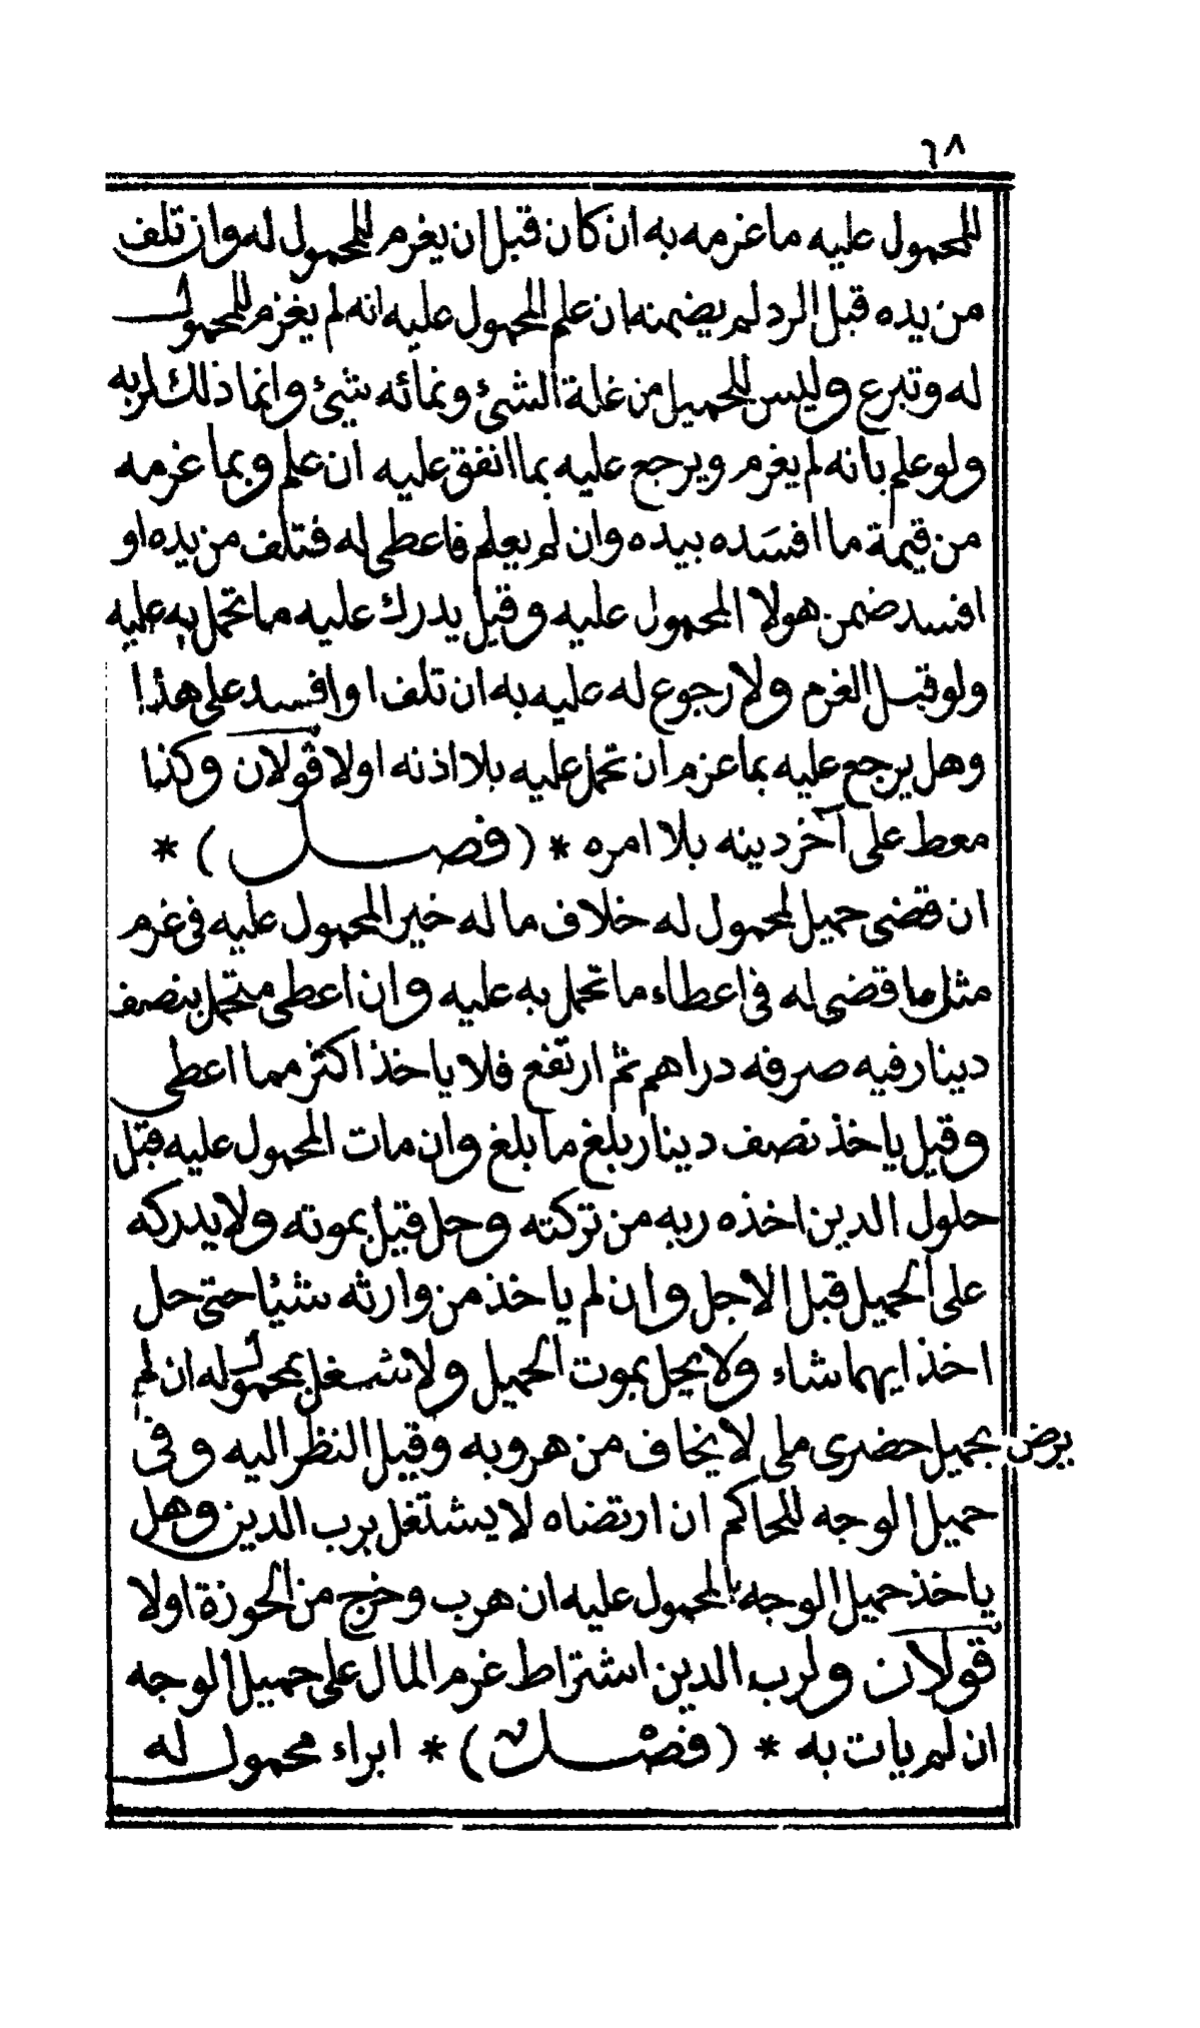 ٦٨
للمحمول عليه ما غرمه به ان كان قبل ان يغرم للمحمول له وان تلف
من يده قبل الرد لم يضمنه ان علم المحمول عليه انه لم يغرم للمحمول
له وتبرع وليس للحميل من غلة الشئ ونمائه شئ وانما ذلك لربه
ولو علم بانه لم يغرم ويرجع عليه بما انفق عليه ان علم وبما غرمه
من قيمة ما افسده بيده وان لم يعلم فاعطى له فتلف من يده او
افسد ضمن هولا المحمول عليه وقيل يدرك عليه ما تحمل به عليه
ولو قبل الغرم ولا رجوع له عليه به ان تلف او افسد على هذا
وهل يرجع عليه بما غرم ان تحمل عليه بلا اذنه اولا قولان وكذا
معط على آخر دينه بلا امره * (فصل) *
ان قضى حميل لمحمول له خلاف ما له خير المحمول عليه فى غرم
مثل ما قضى له فى اعطاء ما تحمل به عليه وان اعطى متحمل بنصف
دينار فيه صرفه دراهم ثم ارتفع فلا ياخذ اكثر مما اعطى
وقيل ياخذ نصف دينار بلغ ما بلغ وان مات المحمول عليه قبل
حلول الدين اخذه ربه من تركته وحل قيل بموته ولا يدركه
على الحميل قبل الاجل وان لم ياخذ من وارثه شيئا حتى حل
اخذ ايهما شاء ولا يحل بموت الحميل ولا شغل بمحمول له ان لم
يرض بحميل حضرى ملى لا يخاف من هروبه وقيل النظر اليه وفى
حميل الوجه للحاكم ان ارتضاه لا يشتغل برب الدين وهل
ياخذ حميل الوجه بالمحمول عليه ان هرب وخرج من الحوزة اولا
قولان ولرب الدين اشتراط غرم المال على حميل الوجه
ان لم يات به * (فصل) * ابراء محمول له